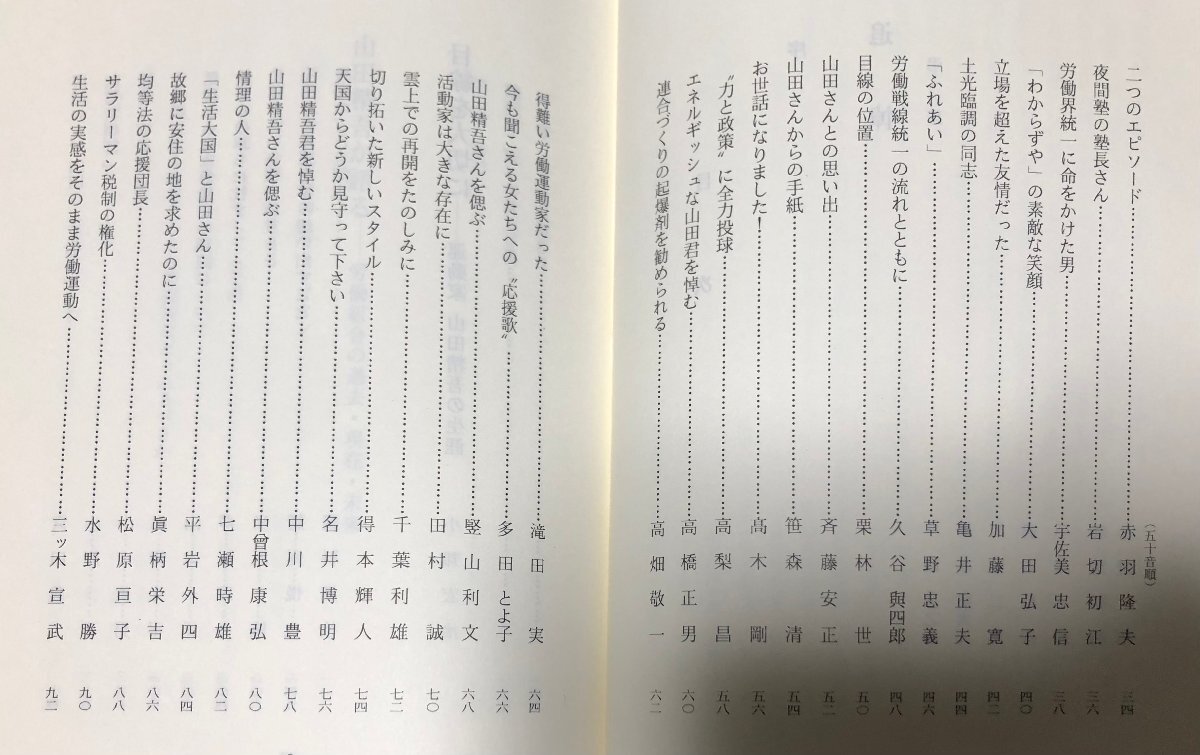 (五十音順)
二つのエピソード……赤羽隆夫 三四
夜間塾の塾長さん……岩切初江 三六
労働界統一に命をかけた男……宇佐美忠信 三八
「わからずや」の素敵な笑顔……大田弘子 四〇
立場を超えた友情だった……加藤寛 四二
土光臨調の同志……亀井正夫 四四
「ふれあい」……草野忠義 四六
労働戦線統一の流れとともに……久谷與四郎 四八
目線の位置……栗林世 五〇
山田さんとの思い出……斉藤安正 五二
山田さんからの手紙……笹森清 五四
お世話になりました!……髙木剛 五六
〝力と政策〟に全力投球……高梨昌 五八
エネルギッシュな山田君を悼む……高橋正男 六〇
連合づくりの起爆剤を勧められる……高畑敬一 六二
得難い労働運動家だった……滝田実 六四
今も聞こえる女たちへの〝応援歌〟……多田とよ子 六六
山田精吾さんを偲ぶ……竪山利文 六八
活動家は大きな存在に……田村誠 七〇
雲上での再開をたのしみに……千葉利雄 七二
切り拓いた新しいスタイル……得本輝人 七四
天国からどうか見守って下さい……名井博明 七六
山田精吾君を悼む……中川豊 七八
山田精吾さんを偲ぶ……中曾根康弘 八〇
情理の人……七瀬時雄 八二
「生活大国」と山田さん……平岩外四 八四
故郷に安住の地を求めたのに……眞柄栄吉 八六
均等法の応援団長……松原亘子 八八
サラリーマン税制の権化……水野勝 九〇
生活の実感をそのまま労働運動へ……三ッ木宣武 九二